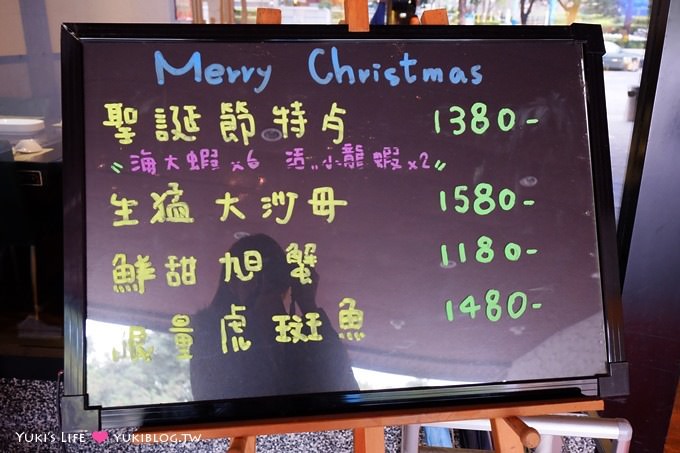 Merry Christmas
聖誕節特点 1380-
〝海大蝦x6 活小龍蝦x2〞
生猛大沙母 1580-
鮮甜旭蟹 1180-
限量虎斑魚 1480-
YUKI'S LIFE ♥ YUKIBLOG.TW